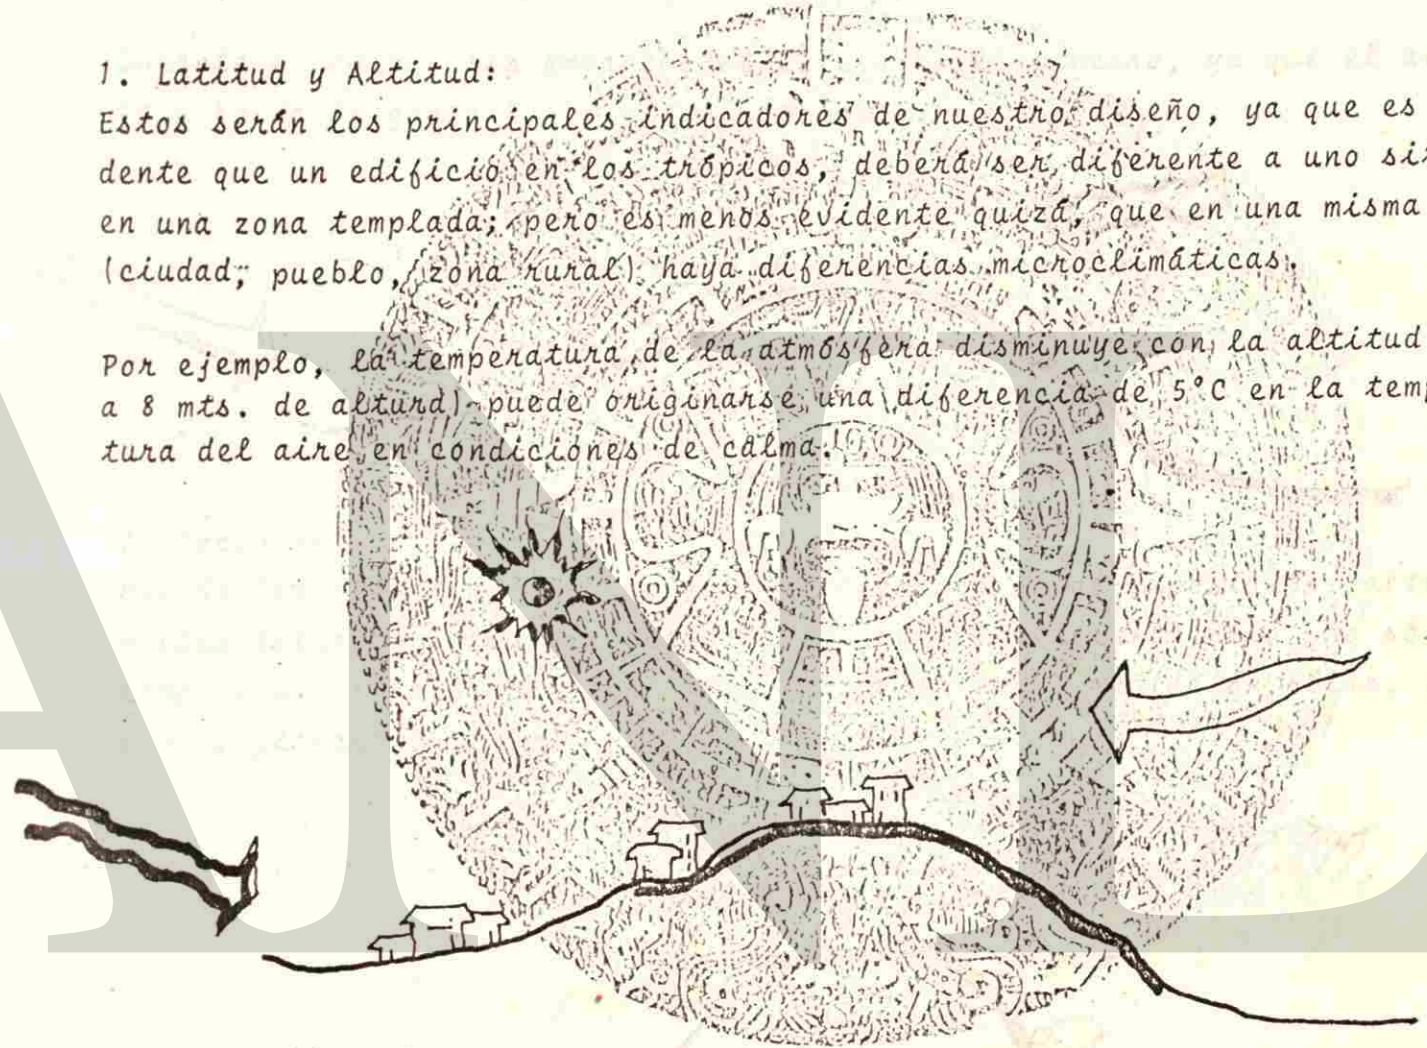 1. Latitud y Altitud:
Estos serán los principales indicadores de nuestro diseño, ya que es
dente que un edificio en los trópicos, deberá ser diferente a uno
en una zona templada; pero es menos evidente quizá, que en una misma
(ciudad, pueblo, zona rural) haya diferencias microclimáticas.
Por ejemplo, la temperatura de la atmósfera disminuye con la altitud
a 8 mts. de altura) puede originarse una diferencia de 5°C en la
tura del aire en condiciones de calma.